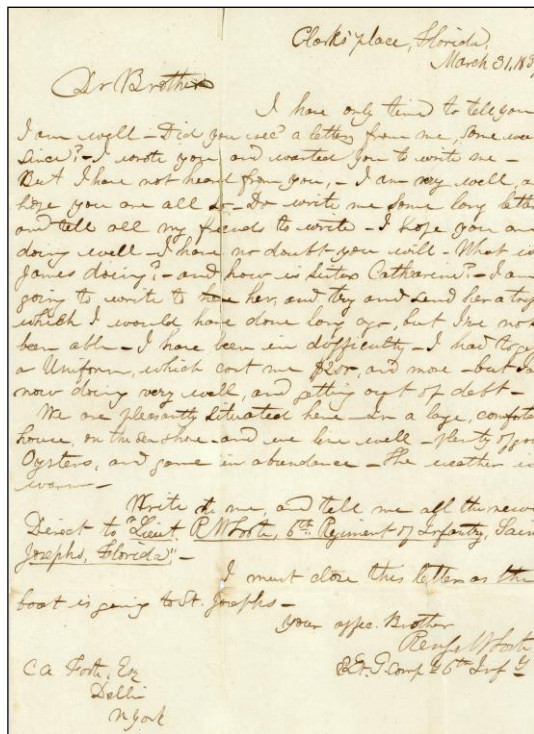 Clark's place, Florida.
March 31, 183
Dr Brother
I have only time to tell you
I am well - Did you rec'd a letter from me, some wee
since? - I wrote you and wanted you to write me -
But I have not heard from you, - I am very well, a
hope you are all so - Do write me some long lette
and tell all my friends to write - I hope you are
doing well - I have no doubt you will - What is
James doing? - and how is sister Catharine? - I am
going to write to her, and try and send her a
which I would have done long ago, but I've not
been able - I have been in difficulty - I had to
a Uniform, which cost me $200, and more - but I a
now doing very well, and getting out of debt -
We are pleasantly situated here - In a large, comforta
house, on the sea shore - and we live well - plenty of
Oysters, and game in abundance - The weather is
warm -
Write to me, and tell me all the news
Direct to "Lieut. R W Foote, 6th Regiment of Infantry, Sain
Josephs, Florida" -
I must close this letter as the
boat is going to St. Josephs -
Your affec. Brother
Rensr W Foote
Lt. G Comp 6th Infy
C A Foote, Esq
Delhi
N York